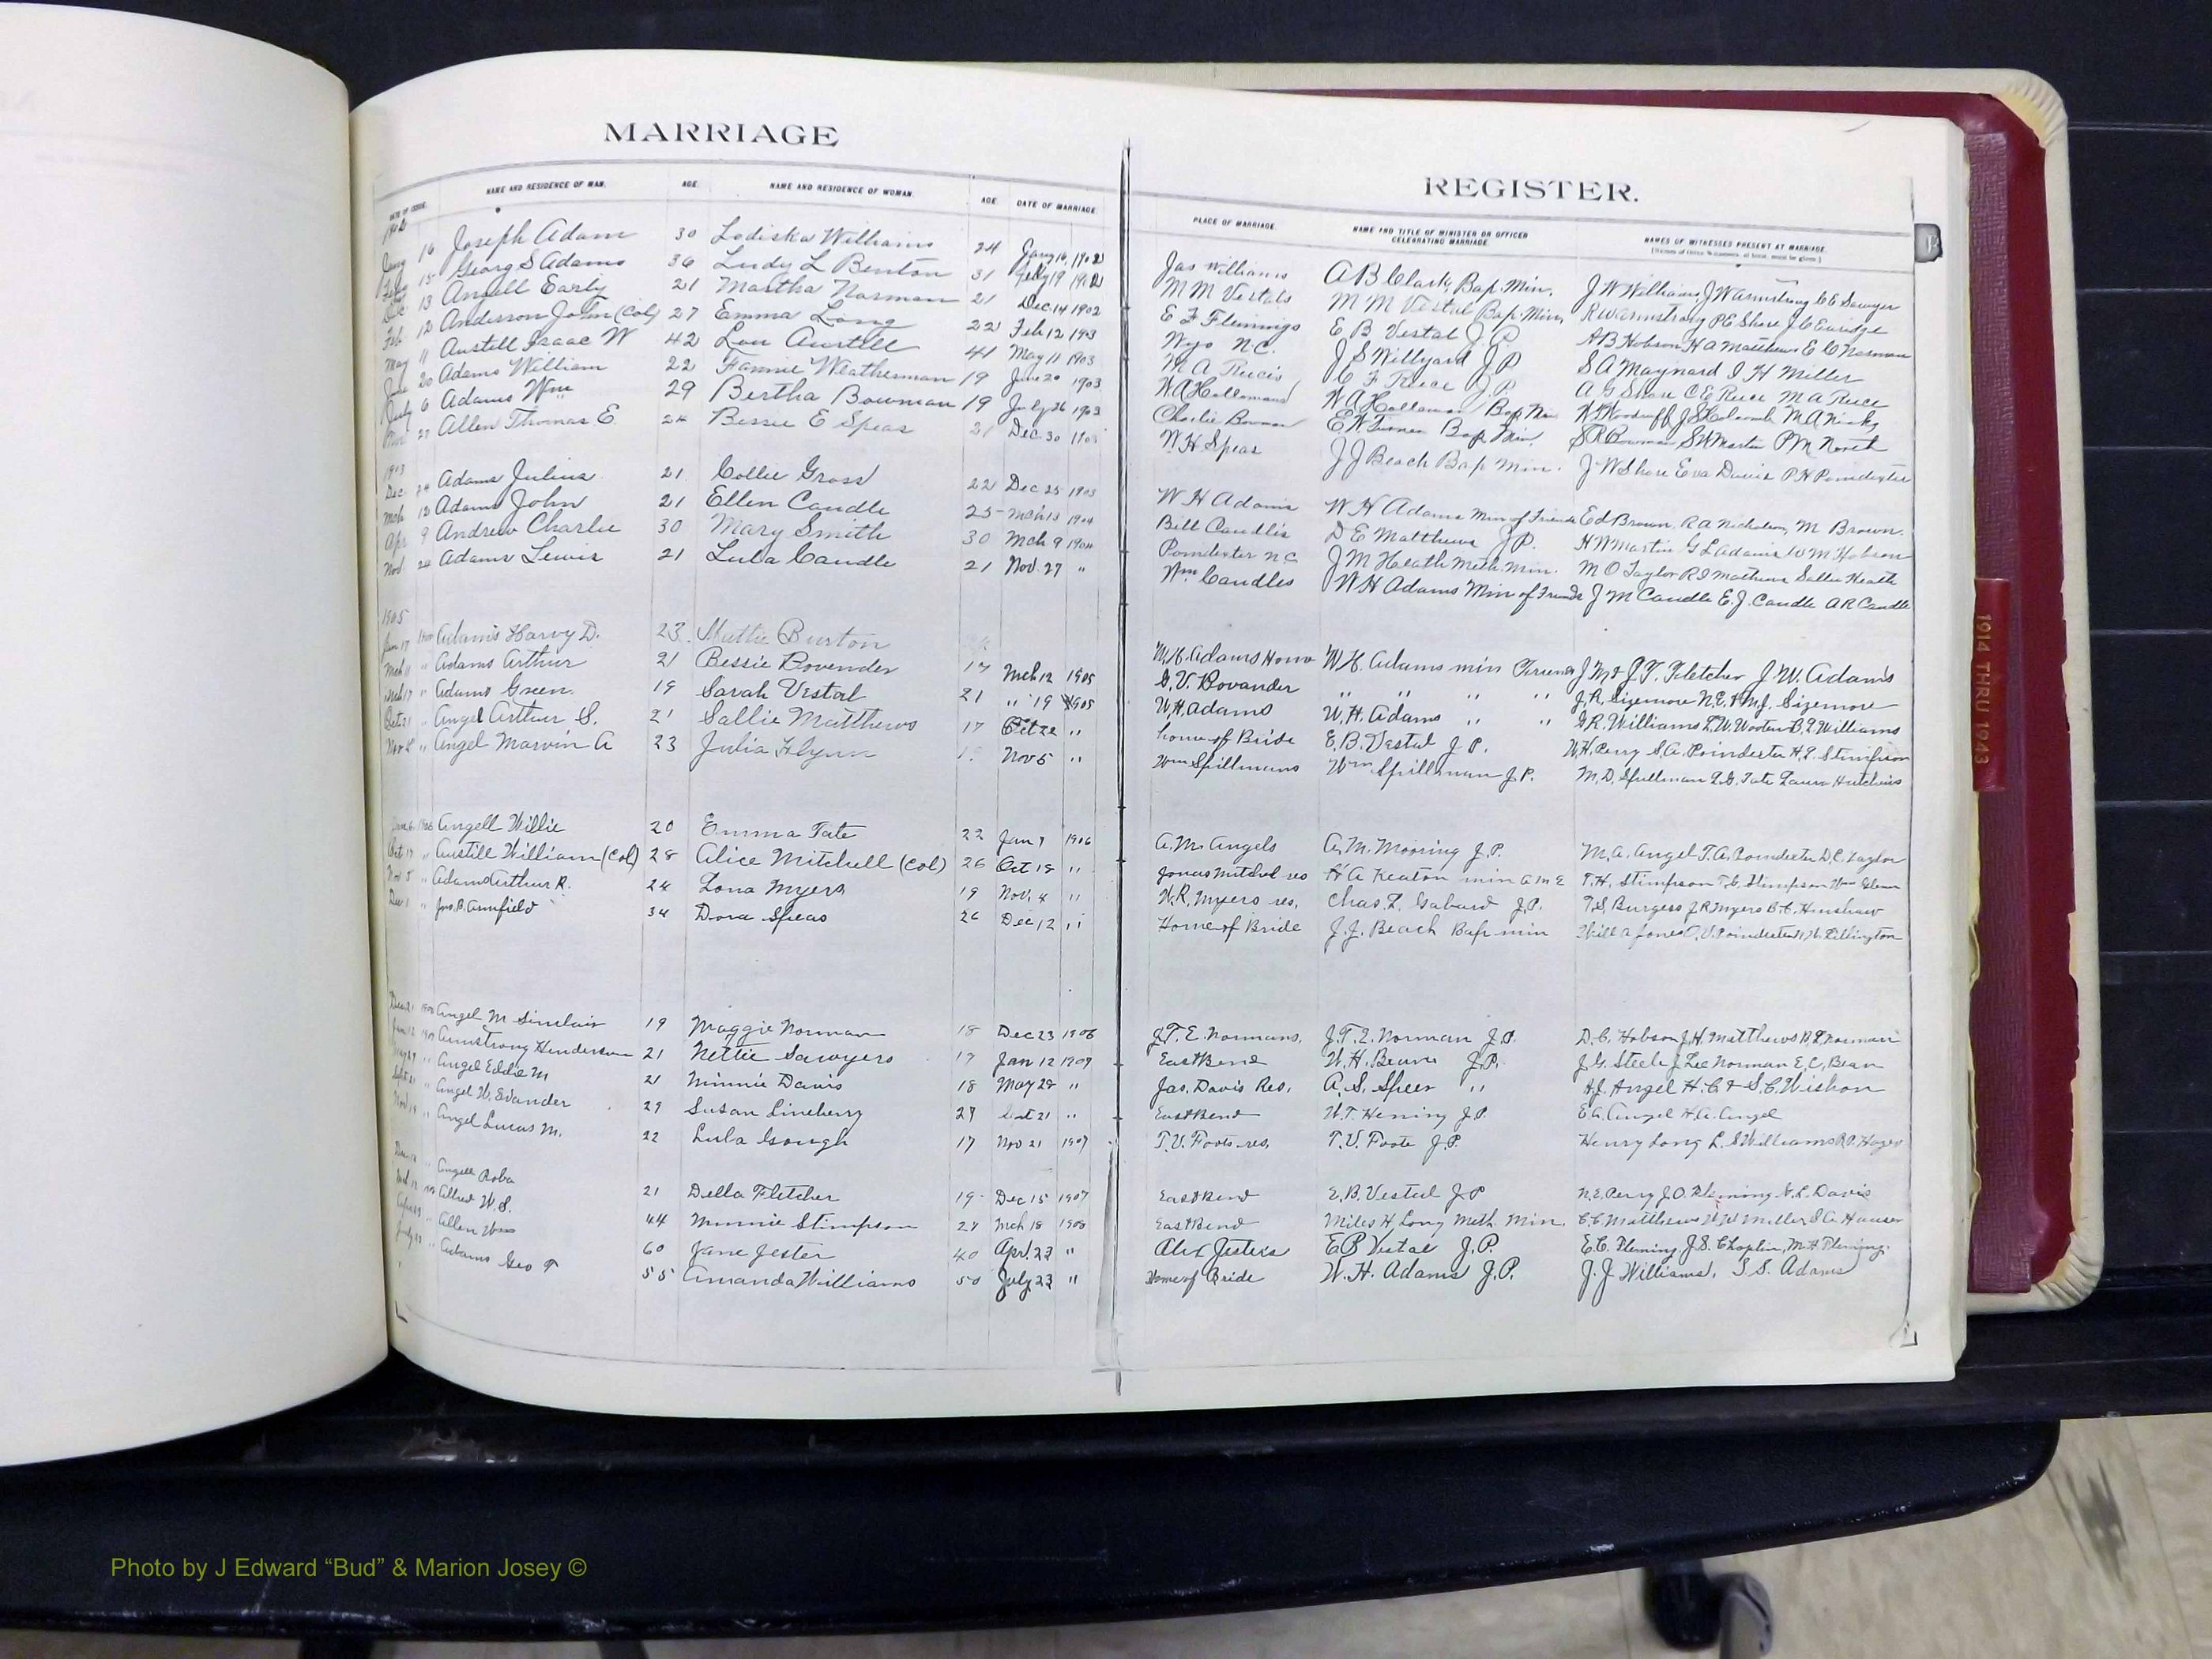 MARRIAGE
REGISTER.
DATE OF ISSUE. NAME AND RESIDENCE OF MAN. AGE. NAME AND RESIDENCE OF WOMAN. AGE DATE OF MARRIAGE. PLACE OF MARRIAGE. NAME AND TITLE OF MINISTER OR OFFICER CELEBRATING MARRIAGE NAMES OF WITNESSES PRESENT AT MARRIAGE.
1902
16 Joseph Adam 30 Lodiska Williams 24 Jany 16, 1902 Jas Williams A B Clark, Bap. Min. J W Williams, J W Armstrong C E Sawyer
15 Georg S Adams 36 Ludy L Benton 31 Feby 19 1902 M M Vestals M M Vestal Bap. Min, R W Armstrong P E Shore J C
Dec. 13 Angell Early 21 Martha Norman 21 Dec. 14 1902 E F Flemings E B Vestal J. P A B Hobson H A Matthews E C Norman
Feb 12 Anderson John (Col) 27 Emma Long 22 Feb 12 1903 N.C. J S Willyard J P S A Maynard I H Miller
May 11 Austill Isaac W 42 Lou Austill 41 May 11 1903 M A C F Reece J. P. A G Shore C E Reece M A Reece
June 20 Adams William 22 Fannie Weatherman 19 June 20 1903 W A W A Bap Min
July 6 Adams Wm 29 Bertha Bowman 19 July 26 1903 Charlie Bowman E W Turner Bap Min. S R Bowman S W Martin P M North
27 Allen Thomas E. 24 Bessie E Speas 21 Dec. 30 W. H Spears J J Beach Bap Min. J W Shore Eva Davis P H Poindexter
1903
Dec. 24 Adams Julius 21 Collie Gross 22 Dec 25 1903 W H Adams W H Adams Min of Friends Ed Brown, R A Nicholson, M Brown.
Mch 12 Adams John 21 Ellen Caudle 25 Mch 13 1904 Bill Caudle's D E Matthews J. P. H W Martin G L Adams W M Hobson
Apr 9 Andrew Charlie 30 Mary Smith 30 Mch 9 1904 Poindexter N C J M Heath Meth. Min. M O Taylor R I Mathews Sallie Heath
Nov 24 Adams Lewis 21 Lula Caudle 21 Nov. 27 " Wm Caudles W H Adams Min of Friends J M Caudle E. J. Caudle A R Caudle
1905
Jan 17 Adams Harvy D. 23. Mattie Burton
Mch 11 " Adams Arthur 21 Bessie Bovender 17 Mch 12 1905 W. H. Adams Home W. H. Adams min Friends J M & J. F. Fletcher J. W. Adams
Mch 17 " Adams Green. 19 Sarah Vestal 21 " 19 1905 G. V. Bovander " " " " J. R. Sizemore N. E. & M. J. Sizemore
Oct. 21 " Angel Arthur S. 21 Sallie Matthews 17 Oct 22 " W. H. Adams W. H. Adams " " G R. Williams L. W. Wooten B. L. Williams
Nov " Angel Marvin A 23 Julia Flynn Nov 5 " home of Bride E. B. Vestal J. P. W. H. Perry S. A. Poindexter H. L. Stimpson
Wm Spillmans Wm Spillman J. P. M. D. Spillman L. G. Tate Laura Hutchins
Angell Willie 20 Emma Tate 22 Jan 7 1906 A. M. Angels A. M. Mooring J. P. M. A. Angel T. A. Poindexter D. C. Taylor
Oct 17 " Austill William (Col) 28 Alice Mitchell (Col) 26 Oct 18 " Jonas Mitchel res H A Keaton min A M E T. H. Stimpson T. C. Stimpson Wm Glenn
Nov 5 " Adams Arthur R. 24 Lona Myers 19 Nov. 4 " W. R. Myers res. Chas. L. Gabard J. P. T. S. Burgess J R Myers B. C. Hinshaw
Dec 1 " Jno. B. Armfield 34 Dora Speas 26 Dec 12 " Home of Bride J. J. Beach Bap min Will A Jones O. V. Poindexter
Dec 21 Angel M Sinclair 19 Maggie Norman 18 Dec 23 1906 J. T. E. Normans. J. T. E. Norman J. P. D. C. Hobson J. H. Matthews R. L. Norman
Jan 12 Armstrong Henderson 21 Nettie Sawyers 17 Jan 12 1907 East Bend W. H. Beane J. P. J. G. Steele J Lee Norman E. C. Bean
" Angel Eddie M 21 Minnie Davis 18 May 28 " Jas. Davis Res. A. S. Speer " A. J. Angel H. C & S. C. Wishon
" Angel W. Evander 29 Susan Lineberry 29 Sept 21 " East Bend W. T. Hening J P. E. A. Angel H. A. Angel
Nov " Angel Lucas M. 22 Lula Gough 17 Nov 21 1907 T. V. Foots res. T. V. Foote J. P. Henry Long L. S Williams
" Angell Roba 21 Della Fletcher 19 Dec 15 1907 East Bend E. B. Vestal J P N. E. Perry J. O. Fleming H. L. Davis
Allred W. S. 44 Minnie Stimpson 28 Mch 18 1908 East Bend Miles H. Long Meth. Min. C. C. Matthews W. W. Miller D A. Hauser
" Allen Wm 60 Jane Jester 40 Apr. 23 " Alex Jesters E B Vestal J. P. E. C. Fleming, J. S. Choplin, M. H. Fleming.
July " Adams Geo T 55 Amanda Williams 50 July 23 " Home of Bride W. H. Adams J. P. J. J Williams, S. S. Adams
1914 THRU 1943
Photo by J Edward “Bud” & Marion Josey ©